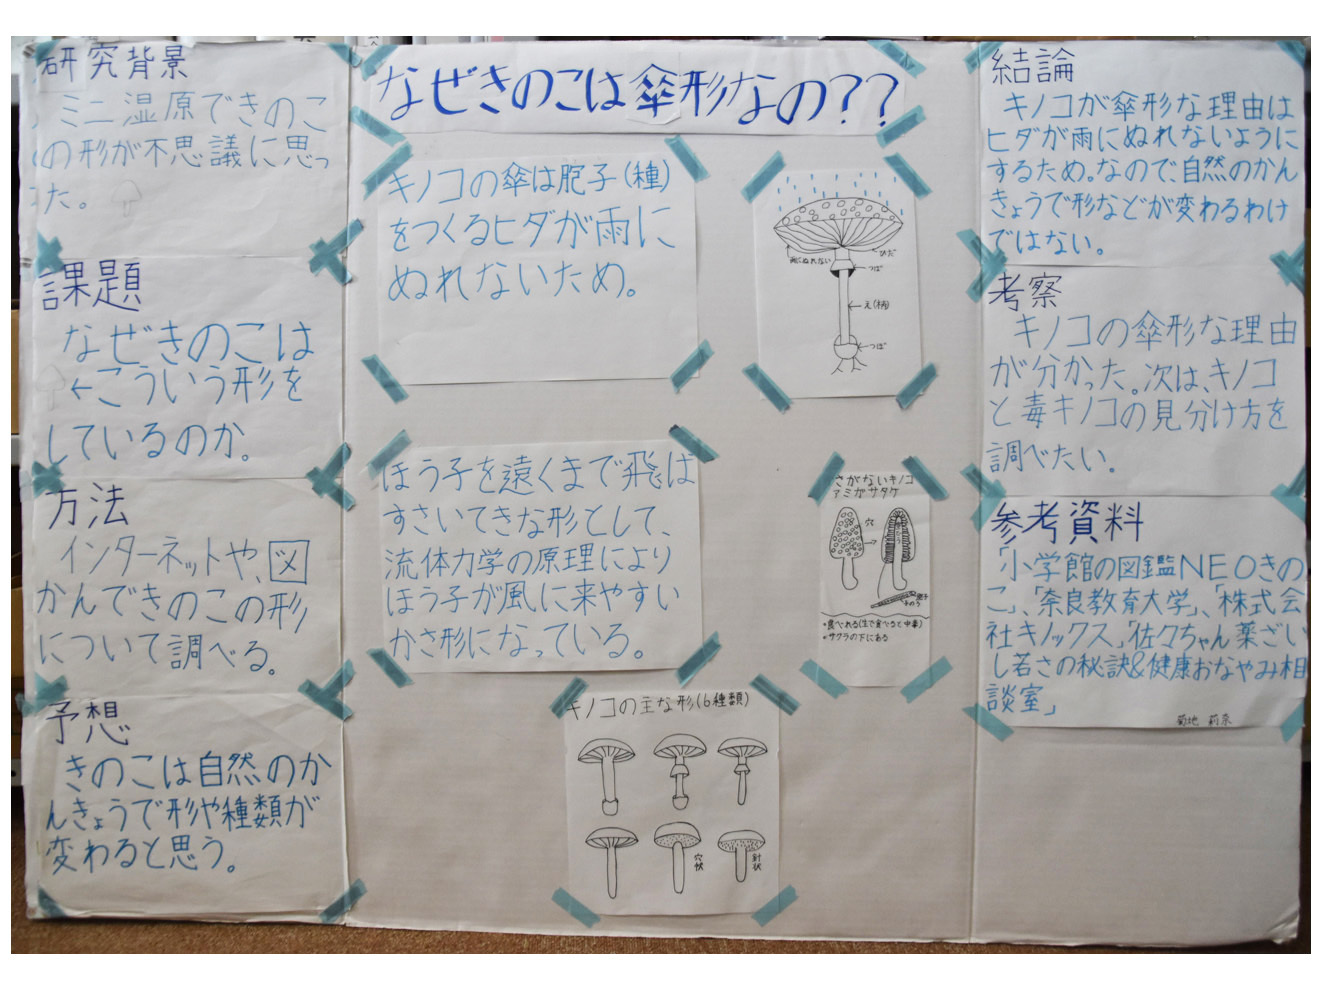 なぜきのこは傘形なの??
研究背景
ミニ湿原できのこ
の形が不思議に思っ
た。
課題
なぜきのこは
←こういう形を
しているのか。
方法
インターネットや、図
かんできのこの形
について調べる。
予想
きのこは自然のか
んきょうで形や種類が
変わると思う。
キノコの傘は胞子(種)
をつくるヒダが雨に
ぬれないため。
雨にぬれない
ひだ
つば
え(柄)
つぼ
ほう子を遠くまで飛ば
すさいてきな形として、
流体力学の原理により
ほう子が風に来やすい
かさ形になっている。
さがないキノコ
アミガサタケ
穴
胞子
•食べれる(生で食べると中毒)
•サクラの下にある
キノコの主な形(6種類)
穴状
針状
結論
キノコが傘形な理由は
ヒダが雨にぬれないように
するため。なので、自然のかん
きょうで形などが変わるわけ
ではない。
考察
キノコの傘形な理由
が分かった。次は、キノコ
と毒キノコの見分け方を
調べたい。
参考資料
「小学館の図鑑NEOきの
こ」、「奈良教育大学」、「株式会
社キノックス」「佐々ちゃん薬ざい
し若さの秘訣&健康おなやみ相
談室」
菊地